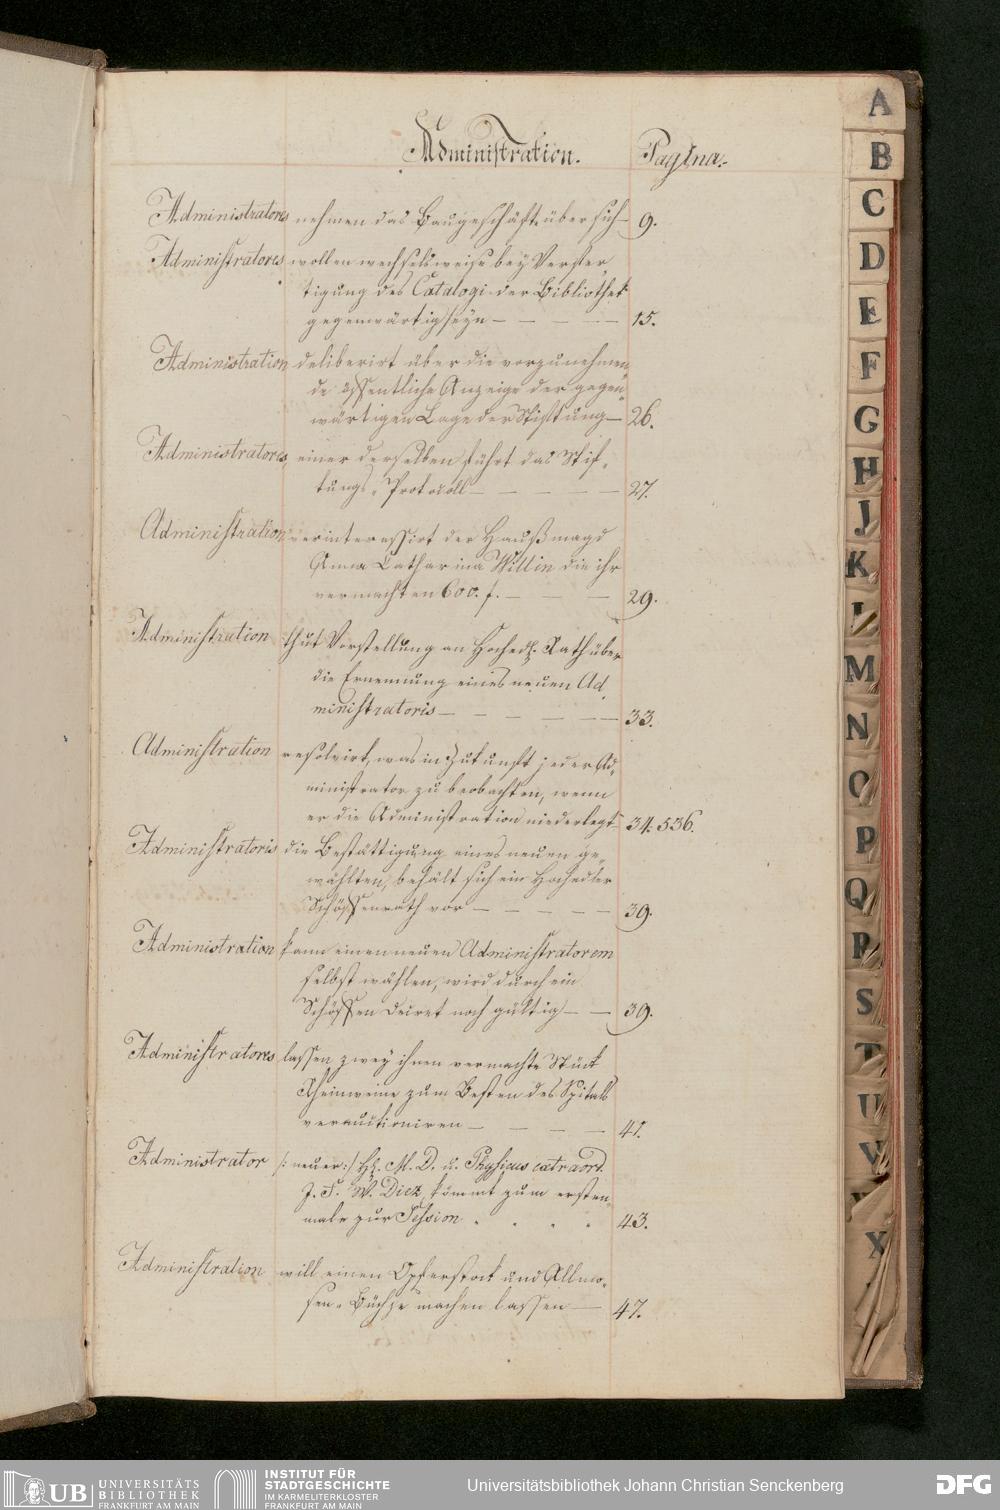 Administration. Pagina.
Administratores nehmen das Baugeschäfte über sich — 9.
Administratores wollen wechselsweise bey Verfer
tigung des Catalogi der Bibliothek
gegenwärtig seyn — — — — — 15.
Administration deliberirt über die vorzunehmen
de öffentliche Anzeige der gegen„
wärtigen Lage der Stiftung — 26.
Administratores, einer derselben führt das Stif„
tungs„Protocoll — — — — — 27.
Administration verinteressirt der Haußmagd
Anna Catharina Willin die ihr
vermachten 600. f. — — — 29.
Administration thut Vorstellung an Hochedl. Rath über
die Ernennung eines neuen Ad„
ministratoris — — — — — 33.
Administration resolvirt, was in Zukunft jeder Ad„
ministrator zu beobachten, wenn
er die Administration niederlegt 34. 536.
Administratoris die Bestättigung eines neuen ge„
wählten, behält sich ein Hochedler
Schöffenrath vor — — — — — 39.
Administration kann einen neuen Administratorem
selbst wählen, wird durch ein
Schöffen Decret noch gültig — — 39.
Administratores lassen zwey ihnen vermachte Stück
Rheinweine zum Besten des Spitals
verauctioniren — — — — 41.
Administrator /: neuer :/ H. M. D. u. Physicus extraord.
J. F. W. Diez, kömmt zum ersten„
male zur Session . . . . 43.
Administration will einen Opferstock und Allmo„
sen„Büchse machen lassen — 47.
A
B
C
D
E
F
G
H
J
K
L
M
N
O
P
Q
R
S
T
U
V
X
UB UNIVERSITÄTS
BIBLIOTHEK
FRANKFURT AM MAIN
INSTITUT FÜR
STADTGESCHICHTE
IM KARMELITERKLOSTER
FRANKFURT AM MAIN
Universitätsbibliothek Johann Christian Senckenberg
DFG